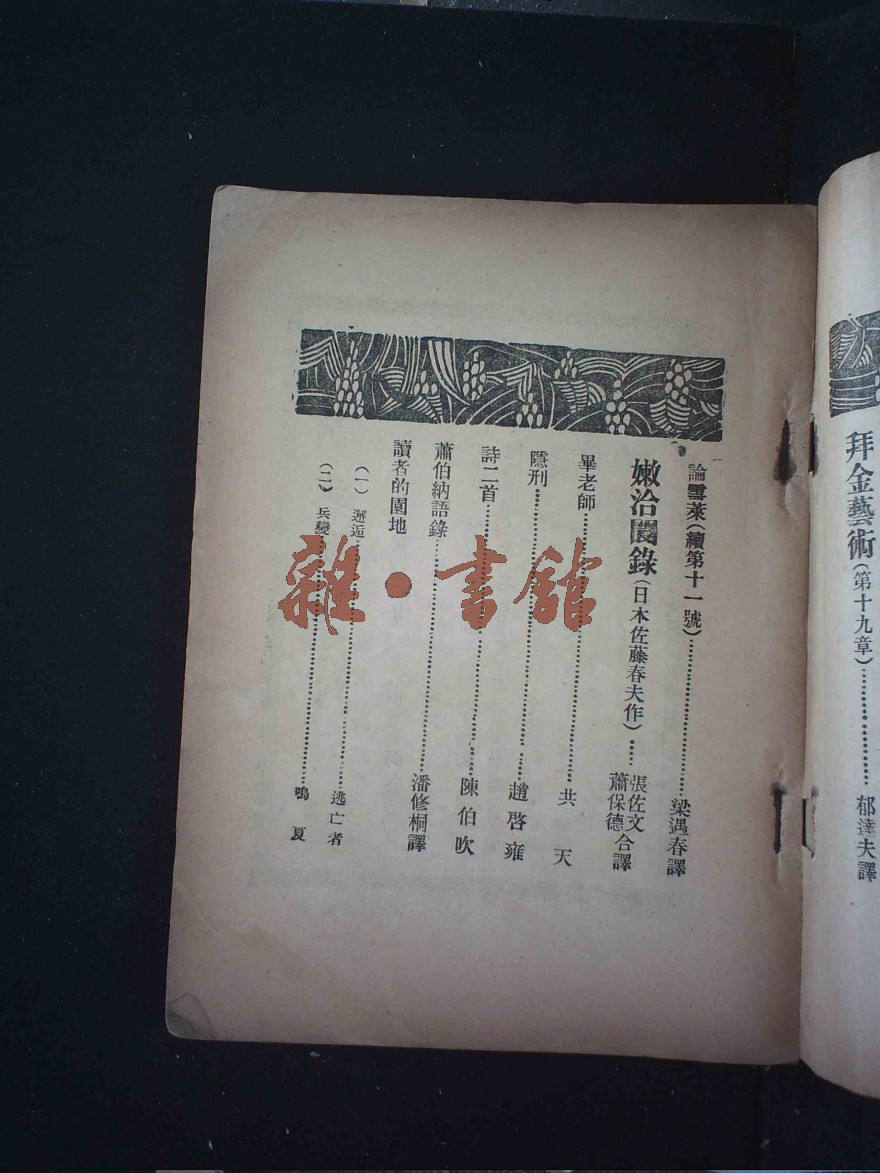 拜金藝術(第十九章)…………郁達夫譯
論雪萊(續第十一號)…………梁遇春譯
嫩洽閨錄(日本佐藤春夫作)……張佐文 蕭保德合譯
畢老師…………共天
隱刑…………趙啓雍
詩二首…………陳伯吹
蕭伯納語錄…………潘修桐譯
讀者的園地
(一)邂逅…………逃亡者
(二)兵變…………鳴夏
雜·書館